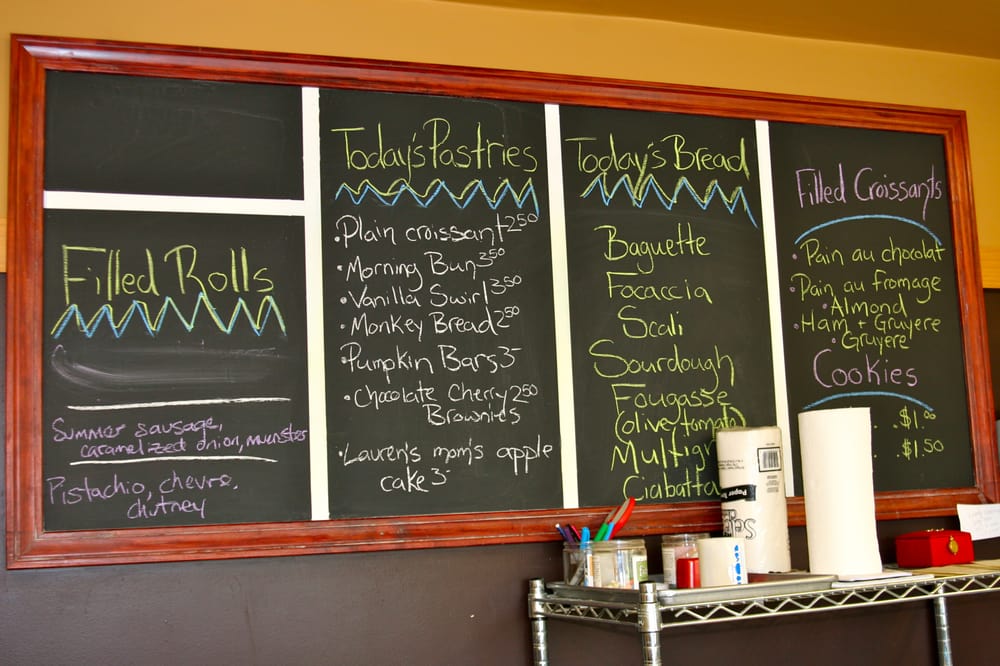 Filled Rolls
Summer sausage,
caramelized onion, muenster
Pistachio, chevre,
chutney
Today's Pastries
•Plain croissant 250
•Morning Bun 350
•Vanilla Swirl 350
•Monkey Bread 250
•Pumpkin Bars 3-
•Chocolate Cherry 250
Brownies
•Lauren's mom's apple
cake 3-
Today's Bread
Baguette
Focaccia
Scali
Sourdough
Fougasse
(olive/tomato)
Multigr
Ciabatta
Filled Croissants
•Pain au chocolat
•Pain au fromage
•Almond
•Ham + Gruyere
•Gruyere
Cookies
.$1.00
.$1.50
Paper